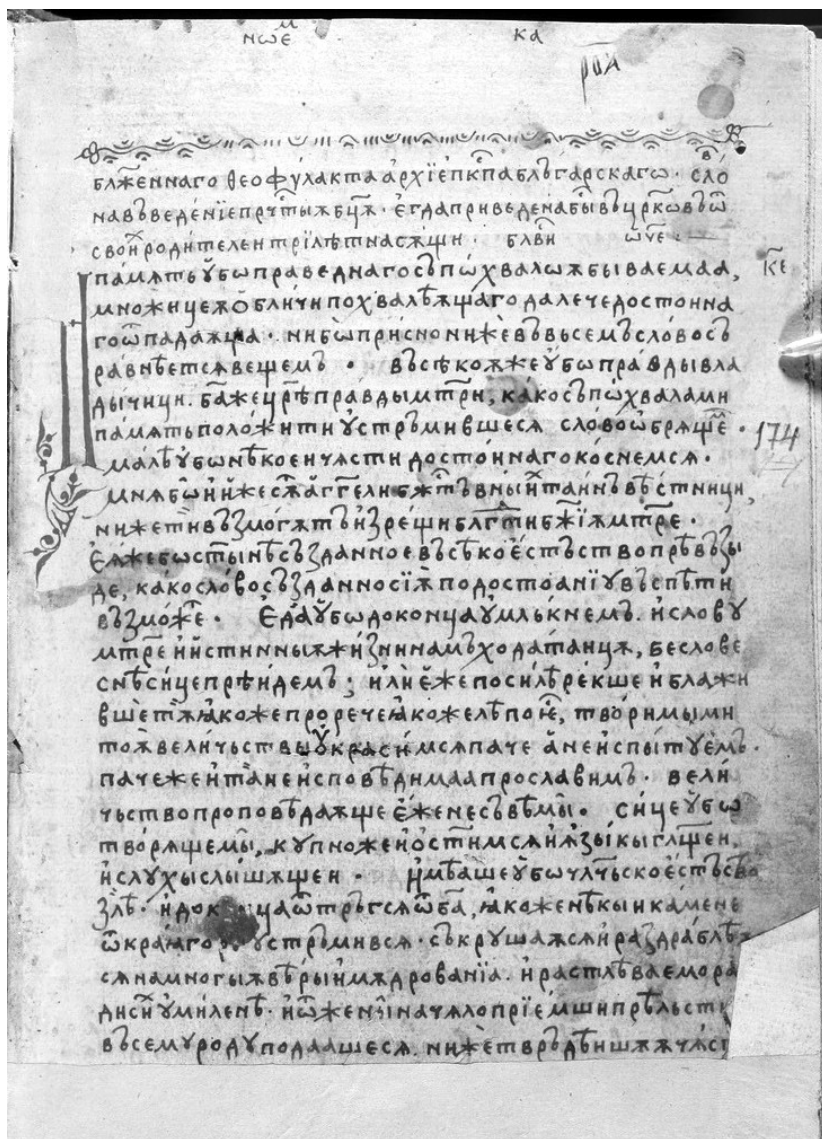 ноем ка
роа
блженнаго θеофѵлакта архїепкпа блъгарскаго · слов
на въведенїе прчтыѫ бцѫ · егда приведена бы въ црковь ѿ
своих родителен трїлѣтна сѫщи · блви ѡче
памѧть ѹбѡ праведнаго съ пѡхвалоѫ бываемаа, к҃е
множицеѫ ѻбличи похвалѣѫщаго далече достоинна
го ѿпадаѫща · ни бѡ присно ниже въ вьсемъ слово съ
равнѣется вещемъ · въсѣко же ѹбѡ правды вла
дычици · бжа же цр҃ѣ правды мтри, како съ пѡхвалами
памѧть положити ѹстръмившеся слово ѡбрящем · 174
малѣ ѹбѡ нѣкоеи чѧсти достоиннаго коснемся ·
мнѧ бѡ ни иже стаа аггели бжтъвных таинъ вѣстници,
ниже ти възмогѫтъ изрещи блгти бжїѧ мтре ·
Еѧже бо стынѣ създанное въсѣко естьство прѣвъзы
де, како слово създанно сїѫ по достоанїѹ въспѣти
възможе · Еда ѹбѡ до конца ѹмлькнем · и словѹ
мтре и истинныѫ жизни нам ходатаицѫ, бесслове
снѣ сице прѣидемъ ; или еже по силѣ рекше и блажи
вше тѫ ꙗкоже прорече ꙗкоже лѣпо е, творимыми
тоѫ величьствы ѹкрасимся паче а неиспытѹемъ ·
паче же и та неисповѣдимаа прославимъ · вели
чьство проповѣдаѫще еже не съвѣмы · сице ѹбѡ
творящемы, кѹпно же и остимся и ѧзыкы глщеи,
и слѹхы слышѧщеи · Имѣаше ѹбѡ члчьское естьсво
злѣ · и до к ца ѿтръгся ѿ ба, ꙗкоже нѣкыи камене
ѿ краѧ го ѹстръмився · съкрѹшаѧся и раздраблѣѫ
ся на многыѫ вѣры и мѫдрованїа · и растлѣваемо ра
ди сих ѹмиленѣ · и ѿ жены начѧло прїемши прѣльсти
въсемѹ родѹ подаашеся. ниже тврьдѣишѫѫ чѧст